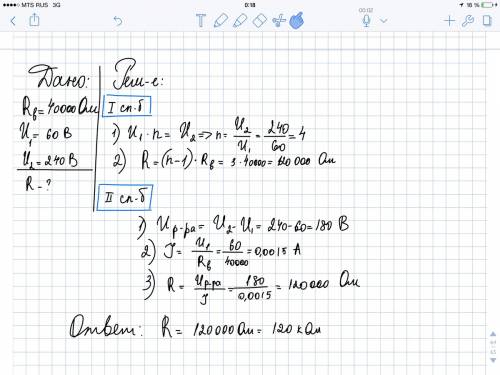 MTS RUS 3G 0:18 16 %
00:02
Дано:
Rв = 40000 Ом
U1 = 60 В
U2 = 240 В
R - ?
Реш-е:
I сп-б
1) U1 · n = U2 => n = U2/U1 = 240/60 = 4
2) R = (n-1) · Rв = 3 · 40000 = 120 000 Ом
II сп-б
1) Uр-ра = U2 - U1 = 240-60 = 180 В
2) J = U1/Rв = 60/40000 = 0,0015 А
3) R = Uр-ра/J = 180/0,0015 = 120000 Ом
Ответ: R = 120000 Ом = 120 кОм
64
65